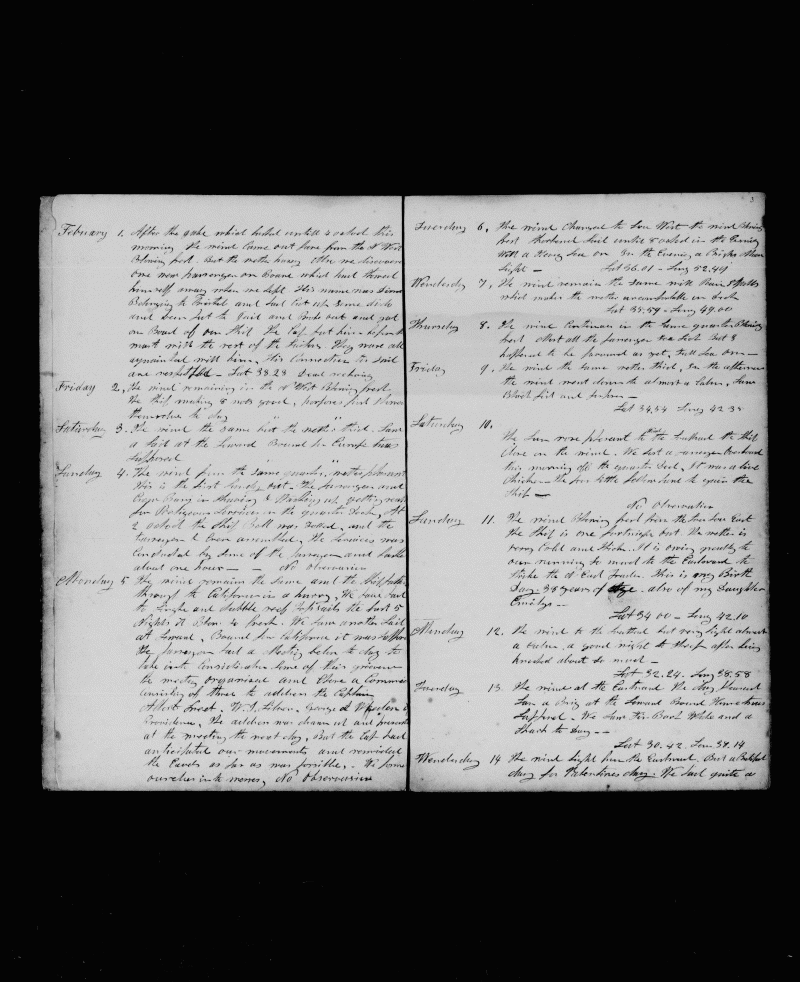 February 1. After the gale which lasted untill 4 oclock this
morning the wind came out fare from the N West
Blowing fresh. But the wether heavy. After we discovered
one new passenger on Board which had stowed
himself away when we left. His name was
Belonging to Bristol and had
and been put to Jail and Broke out and got
on Board of our Ship. The Cap put him
mast with the rest of the Sailors. They ware all
aquainted with him. His connection is said
are respectfull - Lat 38.28 Dead reckoning
Friday 2, The wind remaining in the N West Blowing fresh
The Ship making 8 nots good, porpoises
themselves to day
Saturday 3. The wind the same but the wether thick. Saw
a sail at the Leward Bound for Europe twas
supposed
Sunday 4. The wind from the same quarter, wether pleasant
This is the first Sunday out. The passengers and
Crew Busy in Shaving & Washing up getting ready
for Religeous Services on the quarter Deck, At
2 oclock the Ship Bell was tolled, and the
passengers been assembled, the Services was
Conducted by some of the passengers and lasted
about one hour - - No observation
Monday 5 The wind remains the same and the Ship
through to California in a hurry, We have had
to Single and dubble reef Topsails the last 5
Nights It Blew so fresh. We saw another Sail
at Leward, Bound for California it was suppose
The passengers had a Meeting below to day to
take into Consideration some of their grievences
the meeting organised and Chose a Committee
Consisting of three to address the Captain
Albert Sweet. W. S. George
Providence, The address was drawn out and presented
at the meeting the next day, But the Cap had
anticipated our movements and remidied
the Cavels as far as was possible, - We formed
ourselves into messes, No Observation
Tuesday 6, The wind changed to Sou West the wind Blowing
fresh untill 8 oclock in the Evening
With a Heavy Sea on In the Evening a Bright Moon
Light - Lat 36.01 - Long 52.49
Wednesday 7, The wind remain the same with Rain Squalls
which makes the wether uncomfortable on deck
Lat 35.59 - Long 49.00
Thursday 8. The wind Continues in the same quarter Blowing
fresh Most all the passenger Sea Sick But I
happened to be favoured as yet,
Friday 9. The wind the same wether thick, In the afternoon
the wind went down to almost a Calm, Saw
Black fish and
Lat 34.54 Long 42.35
Saturday 10.
The Sun rose plesant the the Ship
Close on the wind. We lost a passenger overboard
this morning off the quarter Deck, It was a live
Chicken the poor little fellow tried to gain the
Ship -
No Observation
Sunday 11. The wind Blowing fresh from the Sou Sou East
the Ship is one fortnight out. The wether is
very Cold and thick. It is owing greatly to
our running so much to the Eastward to
Strike the N East Trades. This is my Birth
Day 38 years of Age. also of my Daughter
Emilys -
Lat 34 00 - Long 42.10
Monday 12. The wind to the but very light almost
a calm, a good night to sleep after being
knocked about so much -
Lat 32.24. Long 38.58
Tuesday 13. The wind at the Eastward the day pleasant
Saw a Brig at the Leward Bound Homewards
Suppose. We saw fin Back Whale and a
Shark to day - -
Lat 30.42. Lon 38.14
Wednesday 14 The wind light from the Eastward. But a Beautiful
day for Valentines day. We had quite a